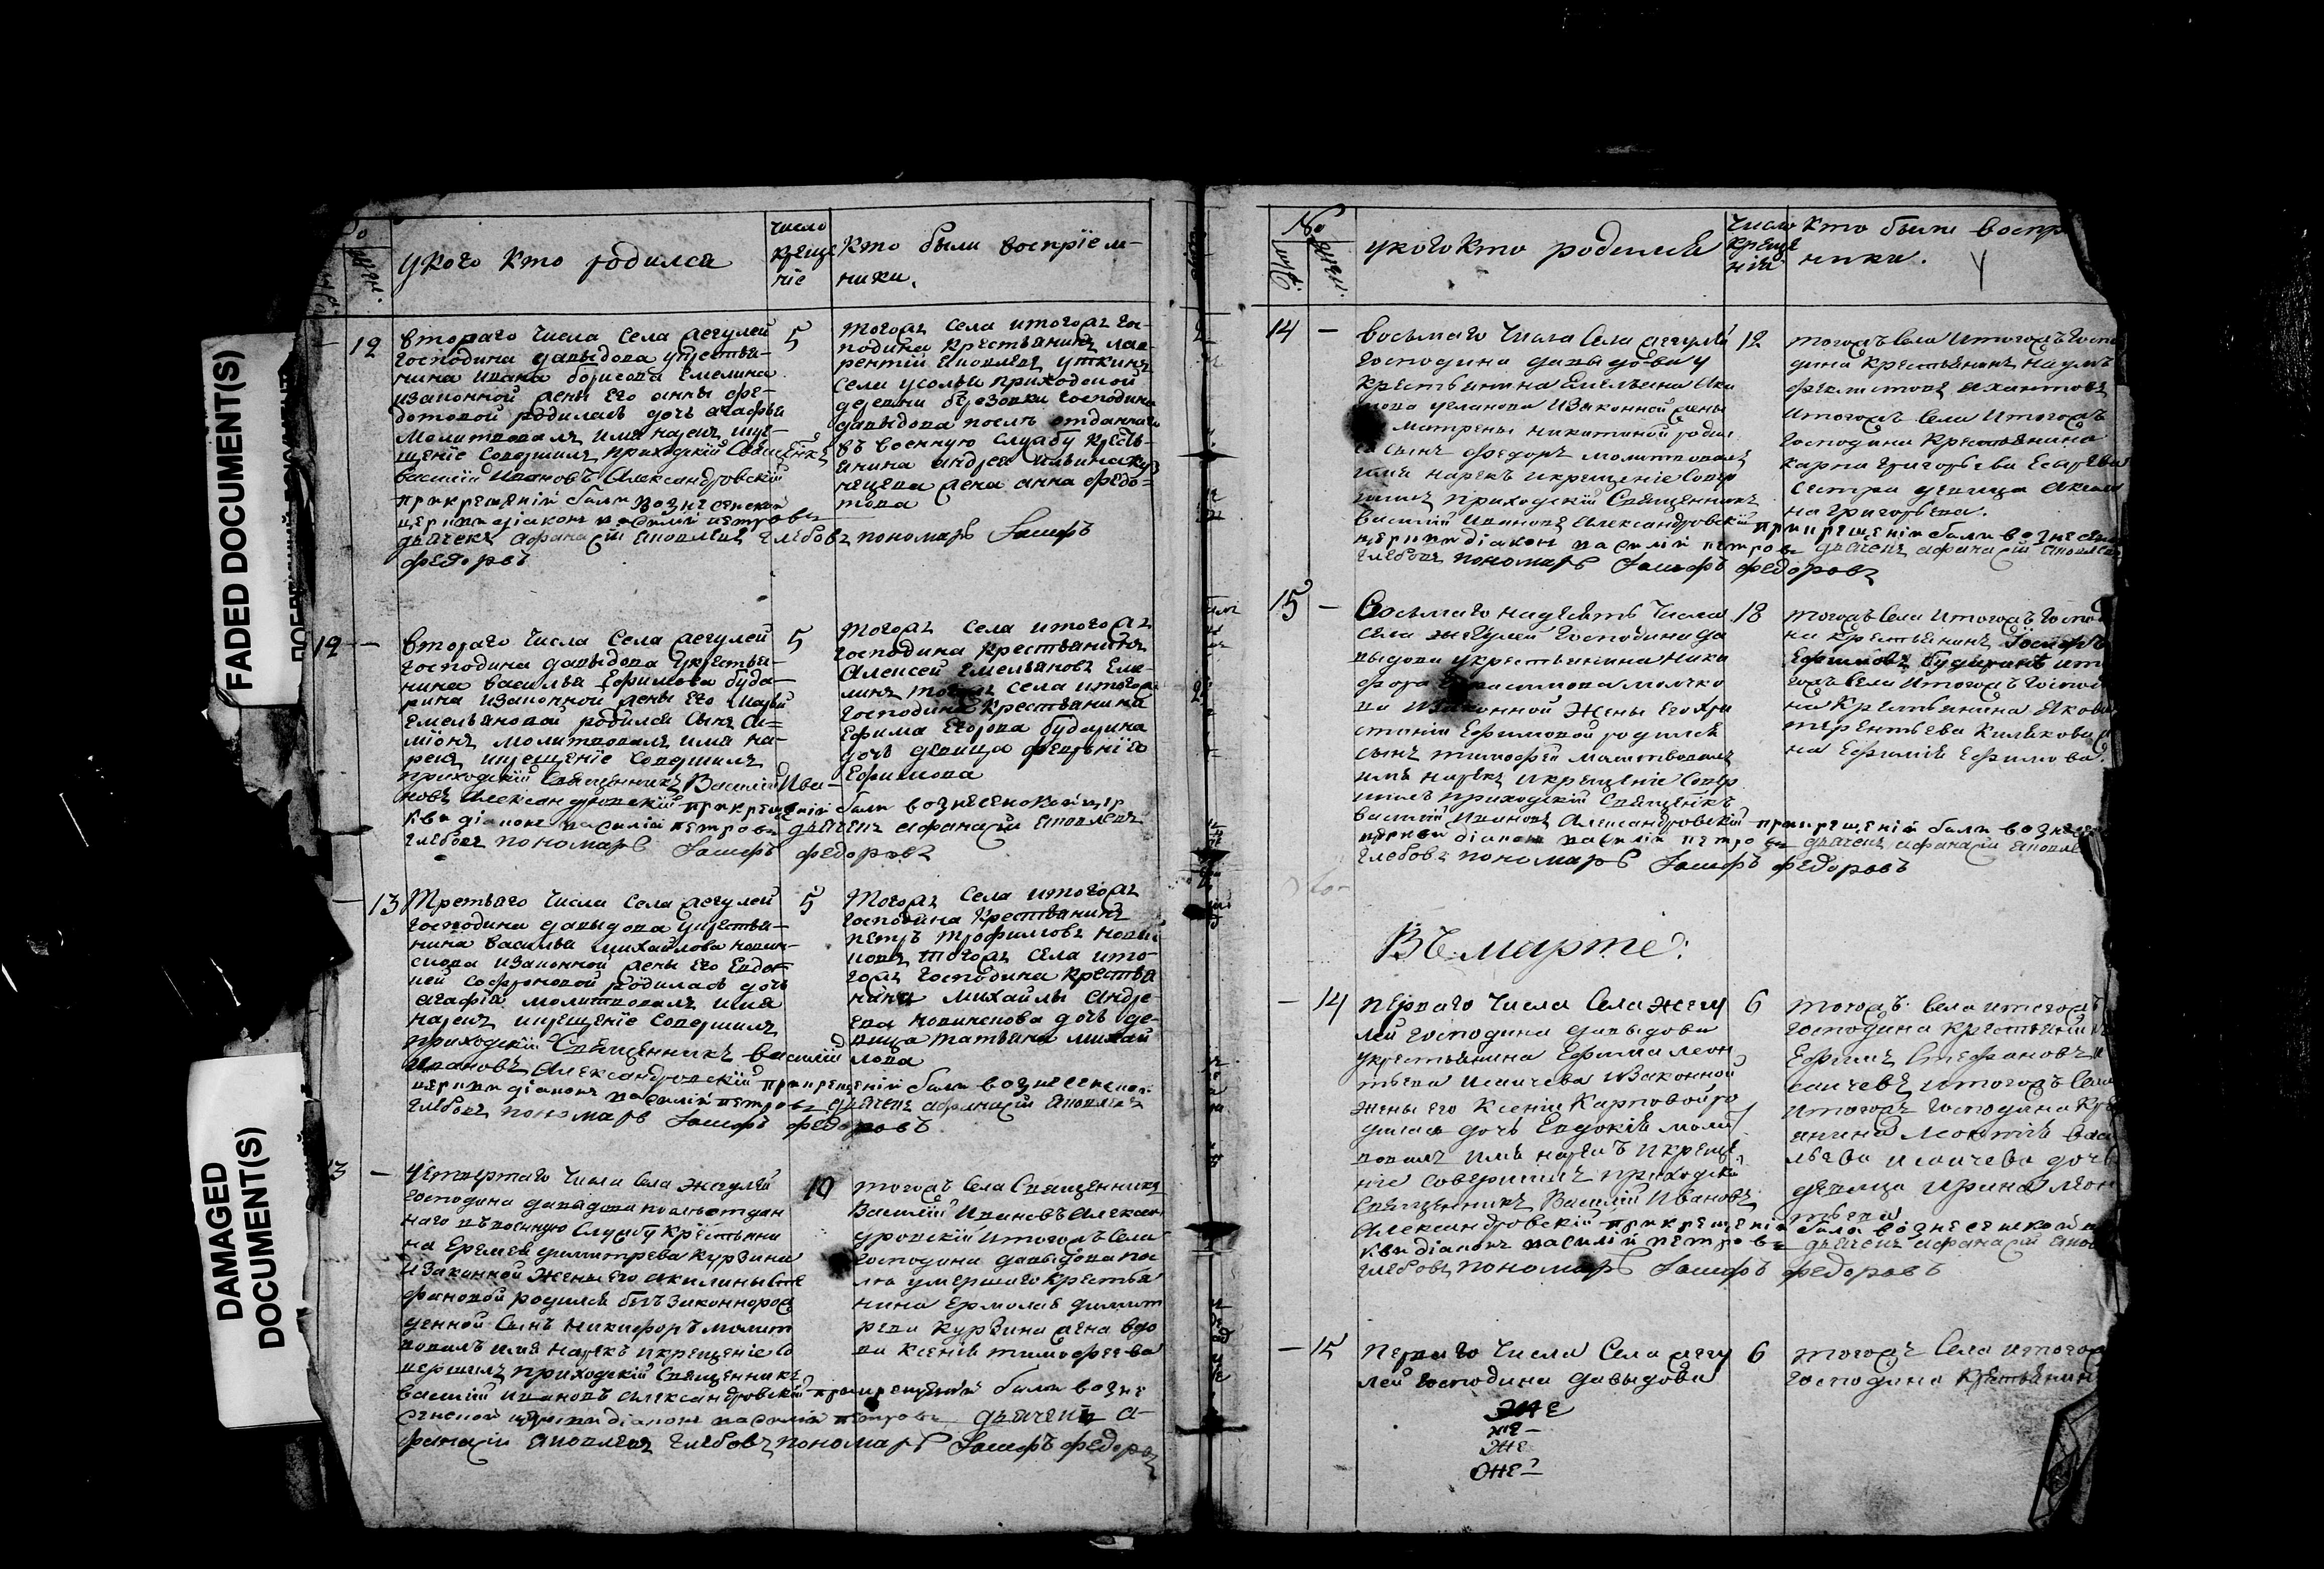 FADED DOCUMENT(S)
DAMAGED
DOCUMENT(S)
у кого кто родился
число
креще
ніе
кто были воспріем-
ники.
12
втораго числа села жегулей
господина давыдова укрестья-
нина ивана борисова Емелина
изаконной жены его анны фе-
дотовой родилась дочь агафья
молитвовалъ имя нарекъ икре-
щеніе совершилъ приходскій Священикъ
василій Ивановъ Александровскій
прикрещеніи были вознесенской
церкви діаконъ василій петровъ
дьячекъ афанасій яковлевъ глебовъ пономарь Іосифъ
федоровъ
5
тогожъ села итогожъ гос-
подина крестьянинъ лав-
рентій яковлевъ уткинъ
села усолья приходской
деревни березовки господина
давыдова послѣ отданнаго
въ военную службу кресть-
янина андрея ильина куз
нецова жена анна федо-
това
12
втораго числа села жегулей
господина давыдова укрестья-
нина василья Ефимова буда-
рина изаконной жены его марьи
Емельяновой родился сынъ си-
міонъ молитвовалъ имя на-
рекъ икрещеніе совершилъ
приходскій Священникъ Василій Ива-
новъ Александровскій прикрещеніи были вознесенской цер
кви діаконъ василій петровъ дьячекъ афанасій яковлевъ
глебовъ пономарь Іосифъ федоровъ
5
тогожъ села итогожъ
господина крестьянинъ
Алексей Емельяновъ Еме-
линъ тогожъ села итогожъ
господина крестьянина
Ефима Егорова бударина
дочь девица февронія
Ефимова
13
Третьяго числа села жегулей
господина давыдова укрестья-
нина василья михайлова новин-
скова изаконной жены его Евдок
ией софроновой родилась дочь
агафія молитвовалъ имя
нарекъ икрещеніе совершилъ
приходскій Священникъ василій
Ивановъ Александровскій прикрещеніи были вознесенской
церкви діаконъ василій петровъ дьячекъ афанасій яковлевъ
глебовъ пономарь Іосифъ федоровъ
5
тогожъ села итогожъ
господина крестьянинъ
петръ трофимовъ новин
сковъ тогожъ села ито-
гожъ господина крестья
нина михайлы андре
ева новинскова дочь де-
вица татьяна михай
лова
13
четвертаго числа села жегулей
господина давыдова послѣ отдан
наго въ военную службу крестьяни
на Еремея димитрева Курзина
изаконной жены его акилины сте
фановой родился беззаконнорож
денной сынъ никифоръ молит
вовалъ имя нарекъ икрещеніе со
вершилъ приходскій священникъ
василій ивановъ александровскій прикрещеніи были возне
сенской церкви діаконъ василій петровъ дьячекъ а-
фанасій яковлевъ глебовъ пономарь Іосифъ федоровъ
10
тогожъ села Священникъ
Василій Ивановъ Алексан
дровскій итогожъ села
господина давыдова пос
ле умершаго крестья
нина Ермолая димит
рева курзина жена вдо
ва ксенія тимофеева
№
у кого кто родился
число
креще
нія
кто были воспр
ники.
14
восьмаго числа села жегулей
господина давыдова у
крестьянина Емельяна
изаконной жены
матрены никитиной родил
ся сынъ федоръ молитвовалъ
имя нарекъ икрещеніе совер
шилъ приходскій Священникъ
василій ивановъ александровскій прикрещеніи были вознесенс
церкви діаконъ василій петровъ дьячекъ афанасій яковлевъ
глебовъ пономарь Іосифъ федоровъ
12
тогожъ села итогожъ госпо
дина крестьянинъ наумъ
итогожъ села итогожъ
господина крестьянина
карпа григорьева
сестра девица
на григорьева.
15
Восьмаго надесять числа
села жегулей господина да
выдова укрестьянина ники
фора
изаконной жены его хри
стиніи Ефимовой родился
сынъ тимофей молитвовалъ
имя нарекъ икрещеніе совер
шилъ приходскій священикъ
василій Ивановъ александровскій прикрещеніи были вознесен
церкви діаконъ василій петровъ дьячекъ афанасій яковле
глебовъ пономарь Іосифъ федоровъ
18
тогожъ села итогожъ господ
на крестьянинъ Іосифъ
Ефимовъ бударинъ ито
гожъ села итогожъ господ
на крестьянина якова
терентьева
на Ефимія Ефимова.
Въ марте:
14
перваго числа села жегу
лей господина давыдова
укрестьянина Ефима леон
тьева исаичева изаконной
жены его ксеніи карповой ро
дилась дочь Евдокія молит
вовалъ имя нарекъ икреще
ніе совершилъ приходскій
священникъ Василій Ивановъ
Александровскій прикрещеніи были вознесенской цер
кви діаконъ василій петровъ дьячекъ афанасій яков
глебовъ пономарь Іосифъ федоровъ
6
тогожъ села итогожъ
господина крестьянинъ
Ефимъ Стефановъ и
саичевъ итогожъ села
итогожъ господина кре
янина леонтія васи
льева исаичева дочь
девица ирина леон
тьева
15
перваго числа села жегу
лей господина давыдова
6
тогожъ села итогож
господина крестьянин
же
же
же